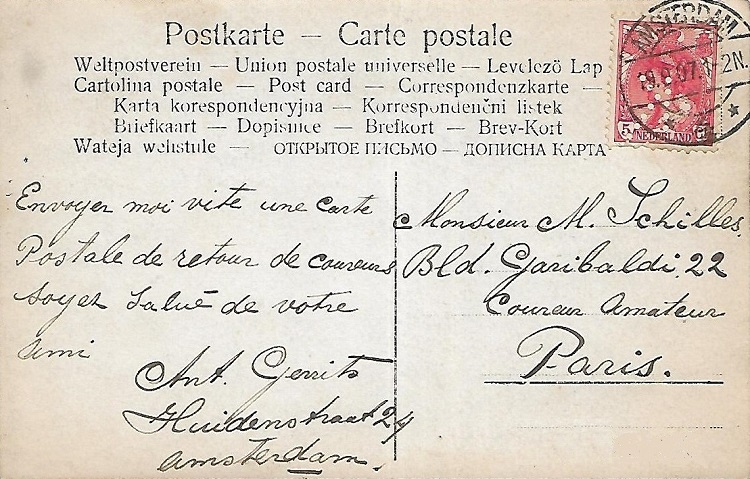 Postkarte — Carte postale
Weltpostverein — Union postale universelle — Levelezö Lap
Cartolina postale — Post card — Correspondenzkarte —
Karta korespondencyjna — Korrespondenční listek
Briefkaart — Dopisnice — Brefkort — Brev-Kort
Wateja wehstule — ОТКРЫТОЕ ПИСЬМО — ДОПИСНА КАРТА
AMSTERDAM
07 2N.
5 NEDERLAND
Envoyez moi vite une carte
Postale de retour de coureurs
soyez salué de votre
ami
Ant. Gerrits
Huidenstraat 24
Amsterdam.
Monsieur M. Schilles,
Bld. Garibaldi, 22
Coureur Amateur
Paris.